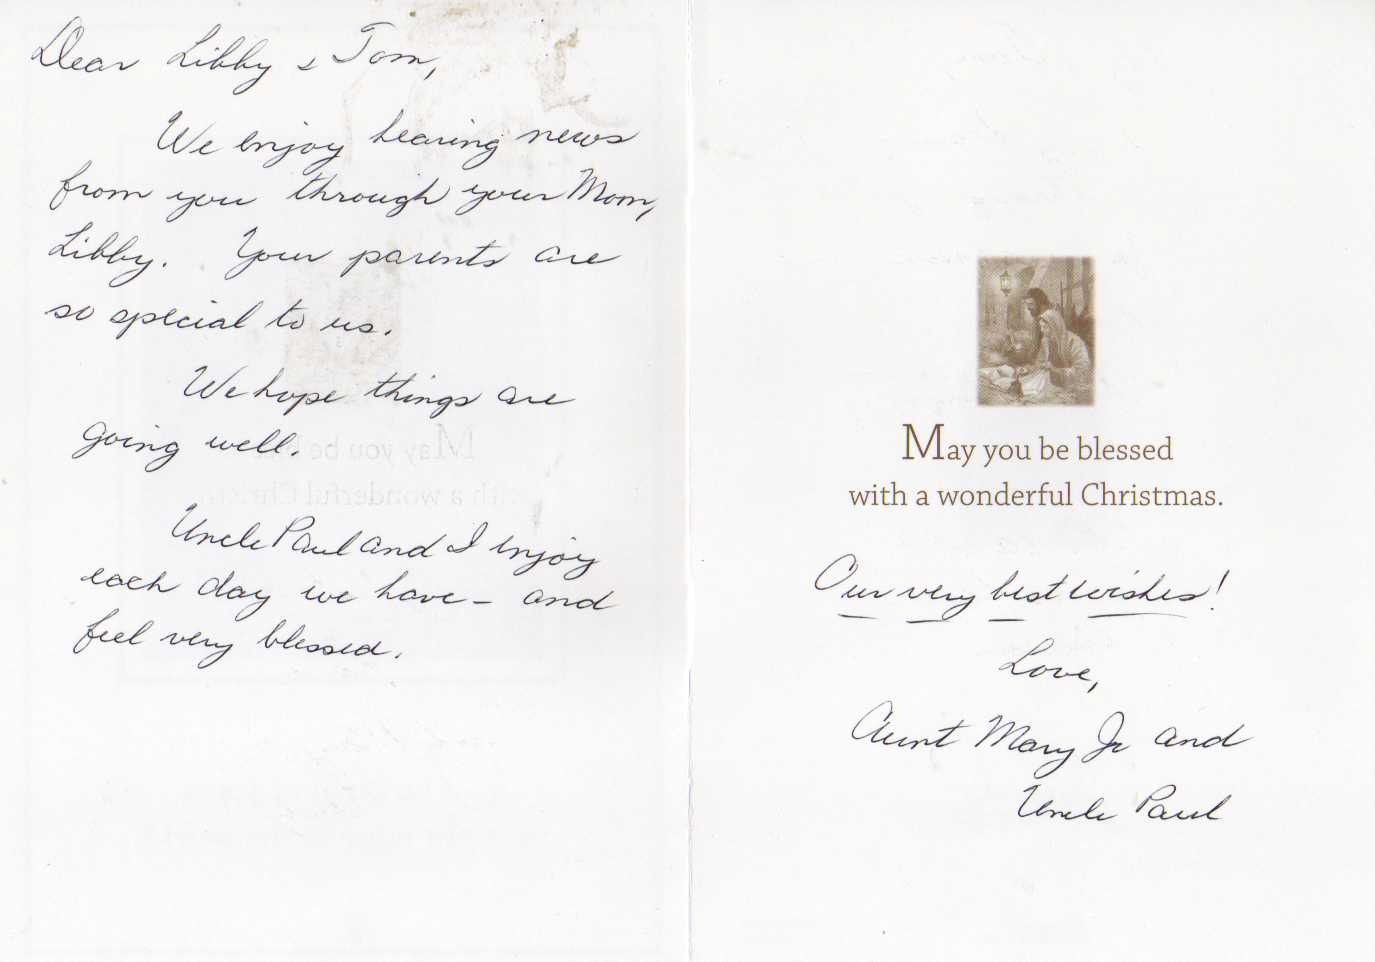 Dear Libby & Tom,
We enjoy hearing news
from you through your Mom,
Libby. Your parents are
so special to us.
We hope things are
going well.
Uncle Paul and I enjoy
each day we have – and
feel very blessed.
May you be blessed
with a wonderful Christmas.
Our very best wishes!
Love,
Aunt Mary Jo and
Uncle Paul